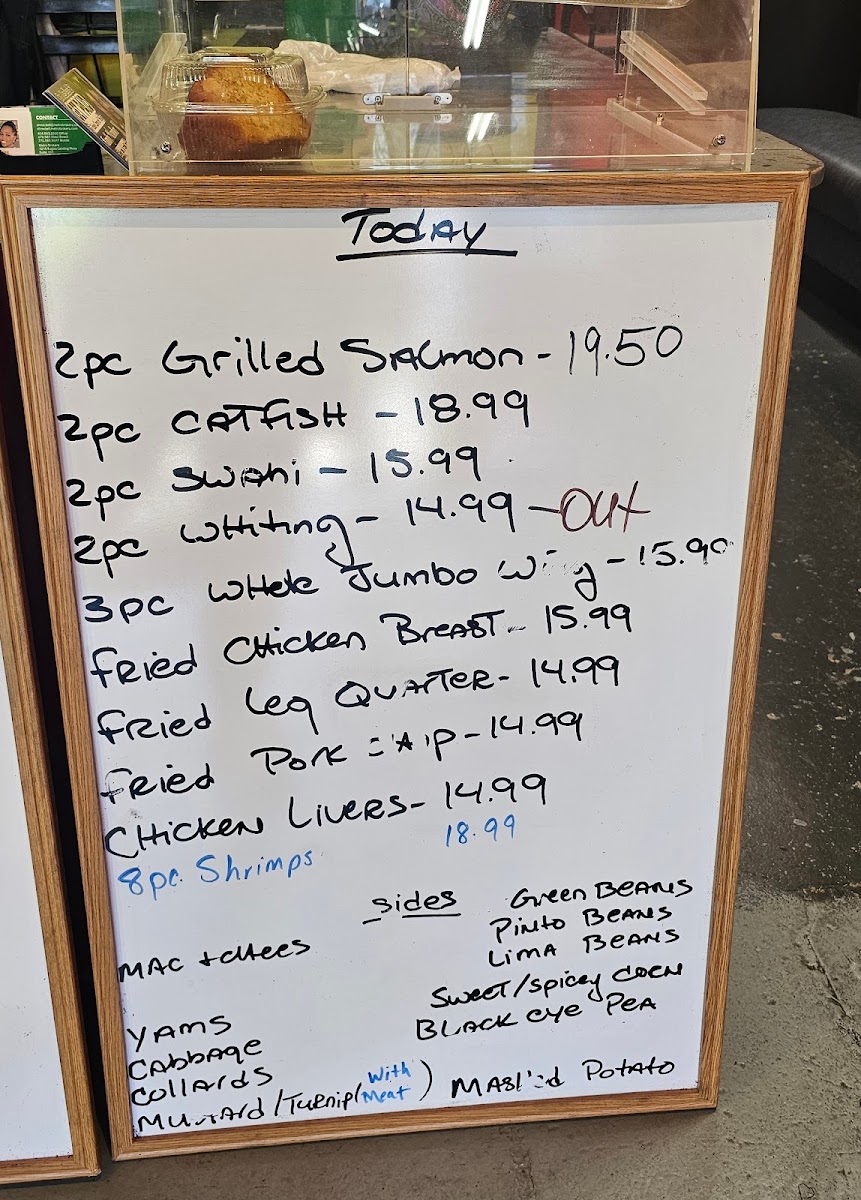 CONTACT
Today
2pc Grilled Salmon - 19.50
2pc CATFISH - 18.99
2pc Swahi - 15.99
2pc Whiting - 14.99 - Out
3pc Whole Jumbo Wing - 15.99
Fried Chicken Breast - 15.99
Fried Leg Quarter - 14.99
Fried Pork - 14.99
Chicken Livers - 14.99
8pc Shrimps 18.99
Sides
Green Beans
Pinto Beans
Lima Beans
Mac + chees
Sweet/spicy corn
Black eye Pea
Yams
Cabbage
Collards
Mustard/Turnip (With Meat)
Mashed Potato